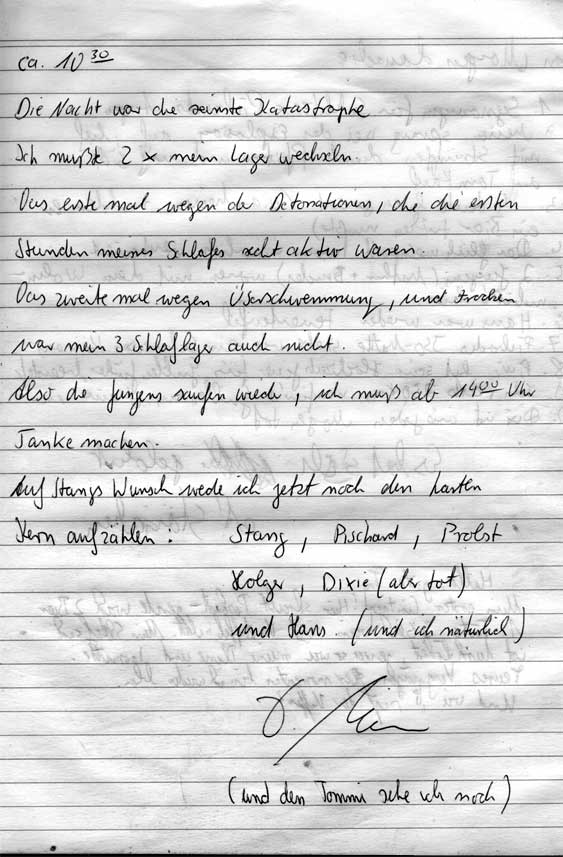 ca. 10 30
Die Nacht war die reinste Katastrophe
Ich mußte 2 x mein Lager wechseln.
Das erste mal wegen der Detonationen, die die ersten
Stunden meines Schlafes recht aktiv waren.
Das zweite mal wegen Überschwemmung, und trocken
war mein 3 Schlaflager auch nicht.
Also die Jungens saufen wieder, ich muß ab 14 00 Uhr
Tanke machen.
Auf Stangs Wunsch werde ich jetzt noch den harten
Kern aufzählen: Stang, Pischard, Probst
Holger, Dixie (aber tot)
und Hans (und ich natürlich)
(und den Tommi sehe ich noch)